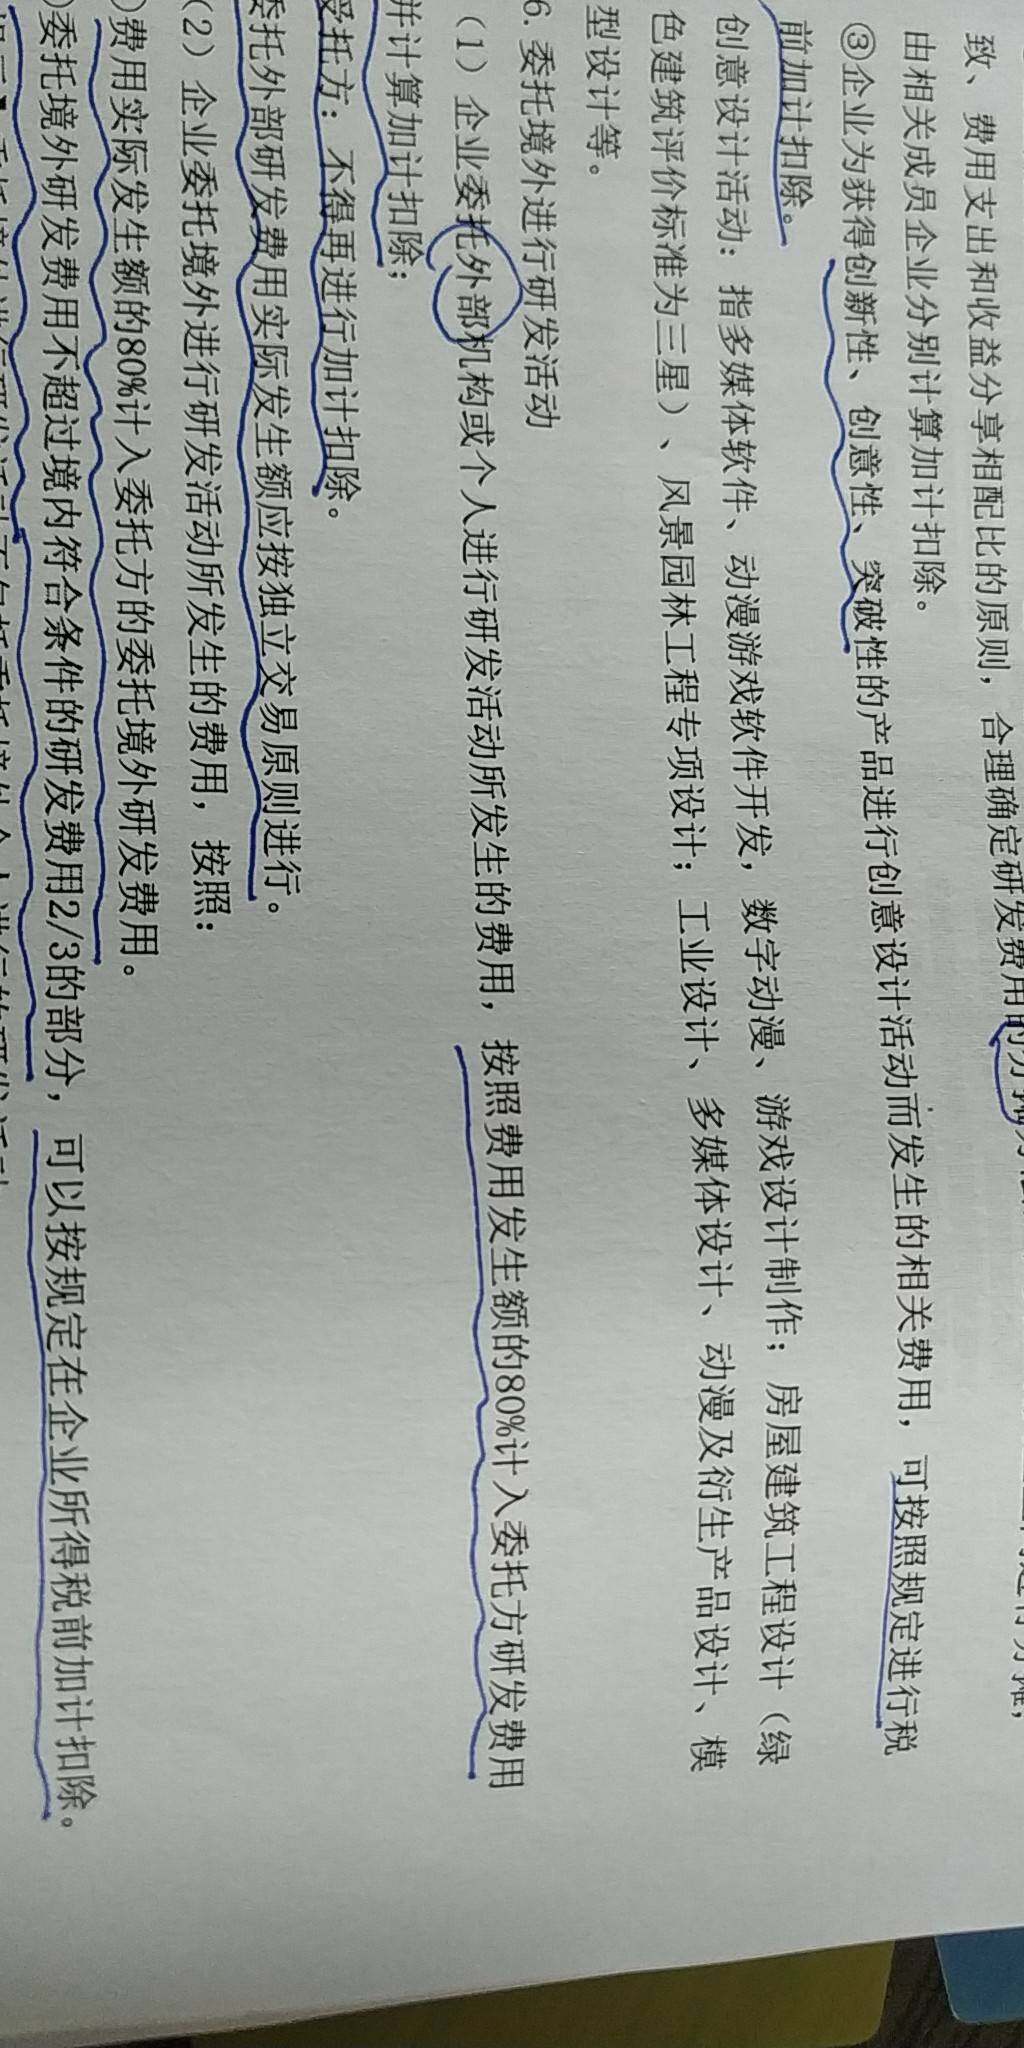 致、费用支出和收益分享相配比的原则，合理确定研发费用的分摊方法
由相关成员企业分别计算加计扣除。
③企业为获得创新性、创意性、突破性的产品进行创意设计活动而发生的相关费用，可按照规定进行税
前加计扣除。
创意设计活动：指多媒体软件、动漫游戏软件开发，数字动漫、游戏设计制作；房屋建筑工程设计（绿
色建筑评价标准为三星）、风景园林工程专项设计；工业设计、多媒体设计、动漫及衍生产品设计、模
型设计等。
6. 委托境外进行研发活动
（1）企业委托外部机构或个人进行研发活动所发生的费用，按照费用发生额的80%计入委托方研发费用
并计算加计扣除；
受托方：不得再进行加计扣除。
委托外部研发费用实际发生额应按独立交易原则进行。
（2）企业委托境外进行研发活动所发生的费用，按照：
费用实际发生额的80%计入委托方的委托境外研发费用。
委托境外研发费用不超过境内符合条件的研发费用2/3的部分，可以按规定在企业所得税前加计扣除。